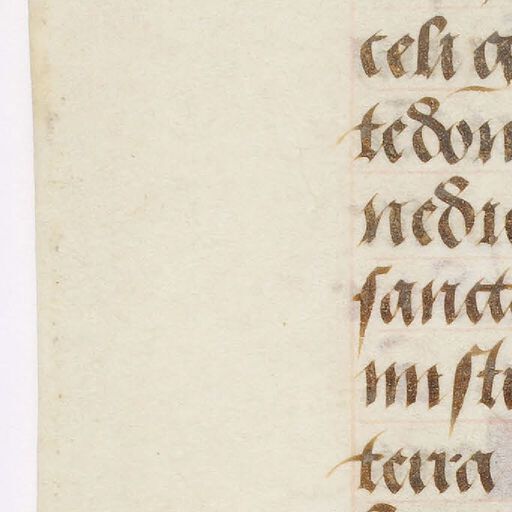 celi
tedon
nedic
sanct
nist
terra